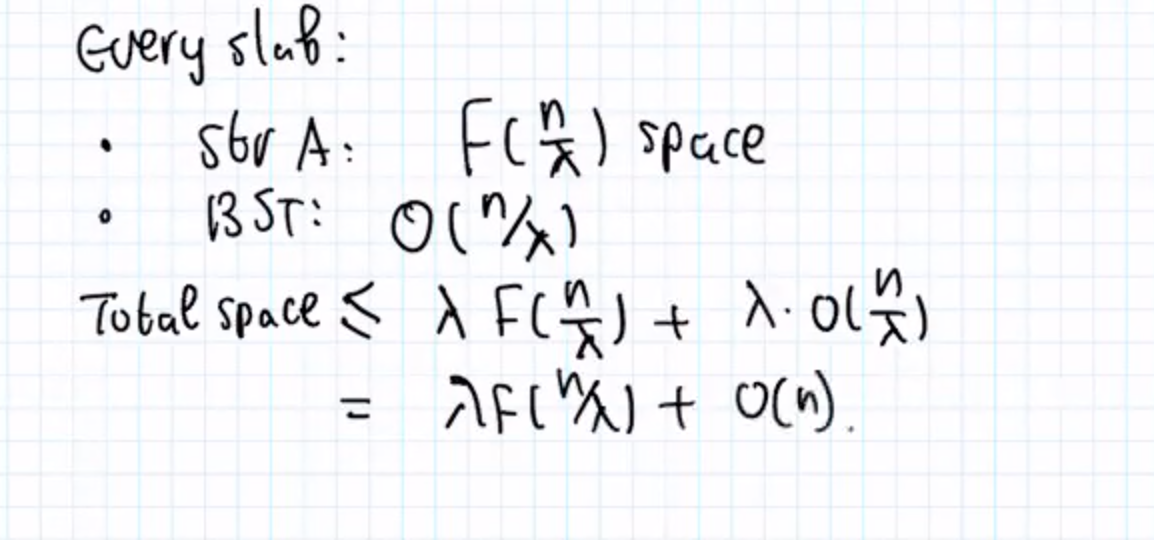 Every slab:
• Str A: F(n/λ) space
• BST: O(n/λ)
Total space ≤ λ F(n/λ) + λ · O(n/λ)
= λF(n/λ) + O(n).